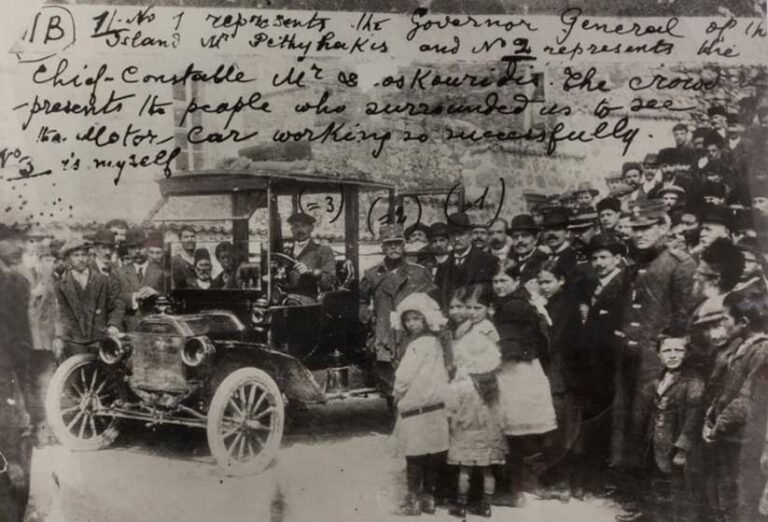 (1B) 1/- No 1 represents the Governor General of the
Island Mr Pethyhakis and No 2 represents the
Chief-Constable Mr The crowd
-presents the people who surrounded us to see
the Motor-Car working so successfully.
No 3 is myself
(=3) (=2) (=1)